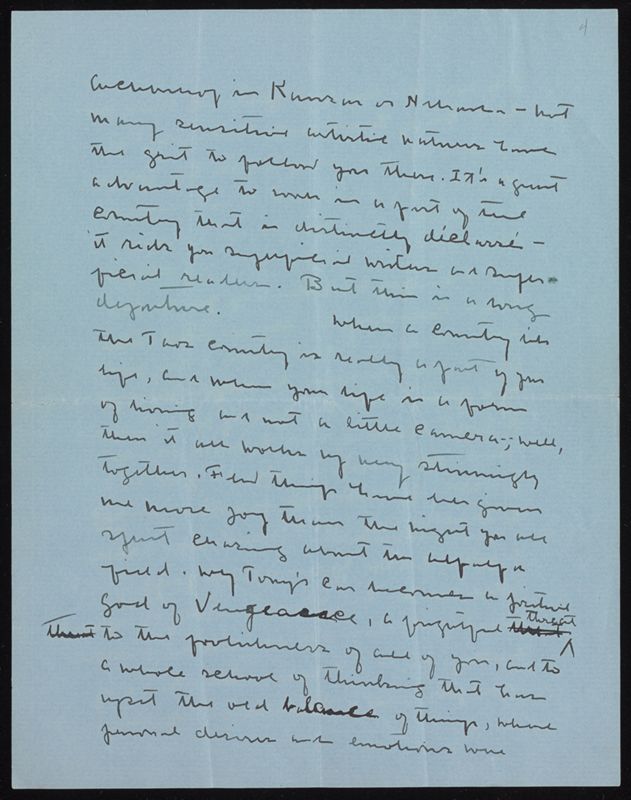 4
in Kansas or Nebraska - not
many sensitive artistic natures have
the grit to follow you there. It's a great
advantage to work in a part of the
country that is distinctly déclassé -
it rids you superficial writers and super-
ficial readers. But this is a long
departure.
When a country like
the Taos country is really a part of your
life, and when your life is a form
of living and not a little camera -, well,
then it all works up very stunningly
together. Few things have ever given
me more joy than the night you all
spent chasing about the alfalfa
field. Why Tony's car becomes a positive
God of Vengeance, a frightful threat
threat to the foolishness of all of you, and to
a whole school of thinking that has
upset the old balance of things, where
personal desires and emotions were